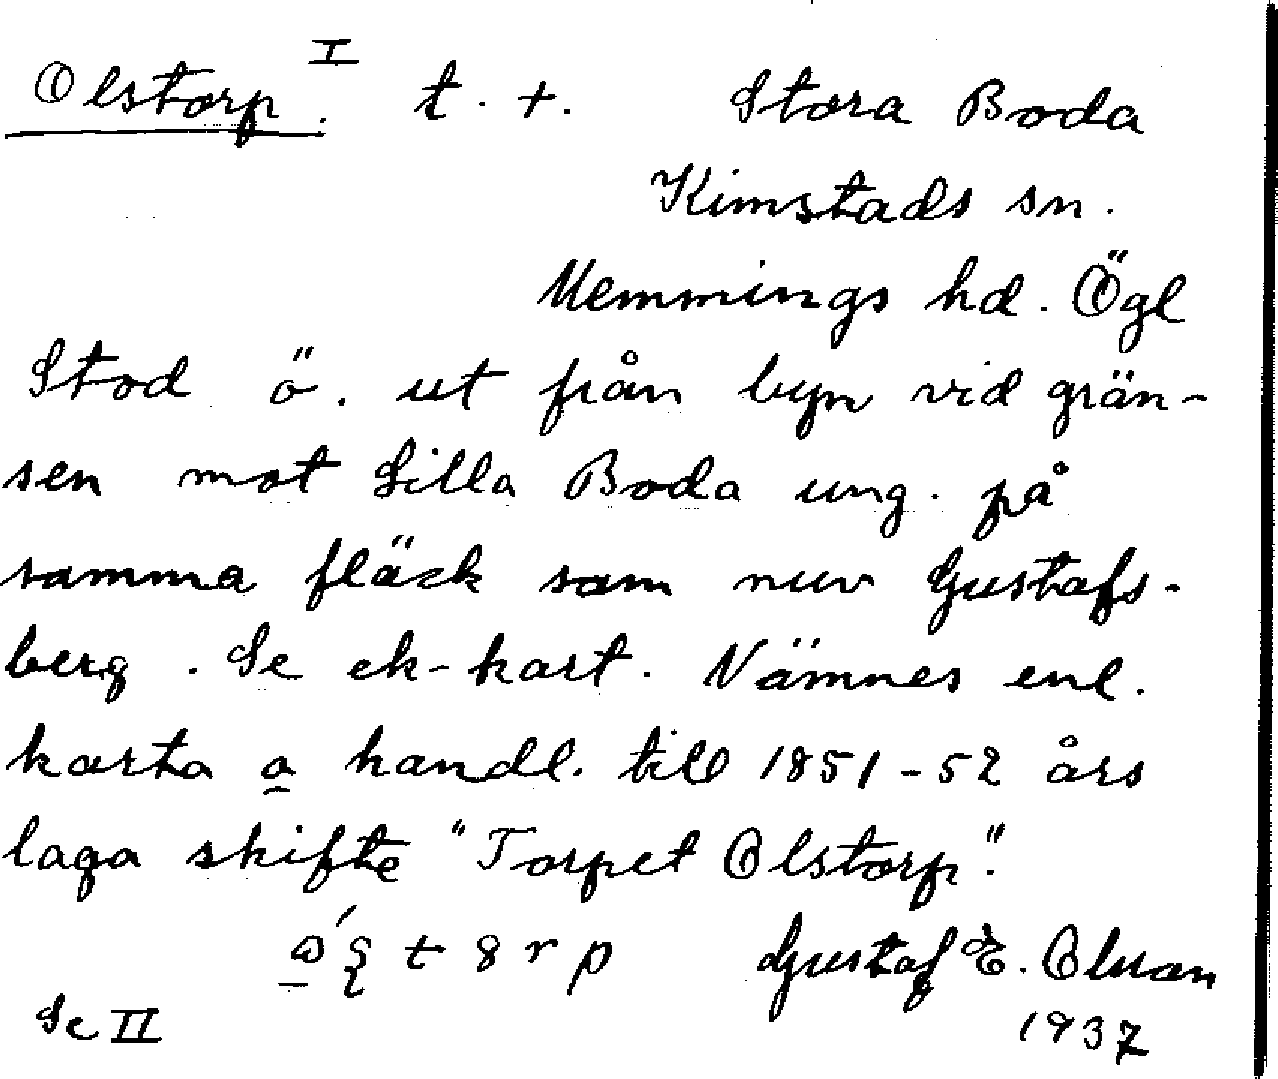 Olstorp. I t. +. Stora Boda
Kimstads sn.
Memmings hd. Ögl
Stod ö. ut från byn vid grän-
sen mot Lilla Boda ung. på
samma fläck som nuv Gustafs-
berg. Se ek-kart. Nämnes enl.
karta o handl. till 1851-52 års
laga skifte "Torpet Olstorp".
Gustaf E. Olsson
Se II 1937